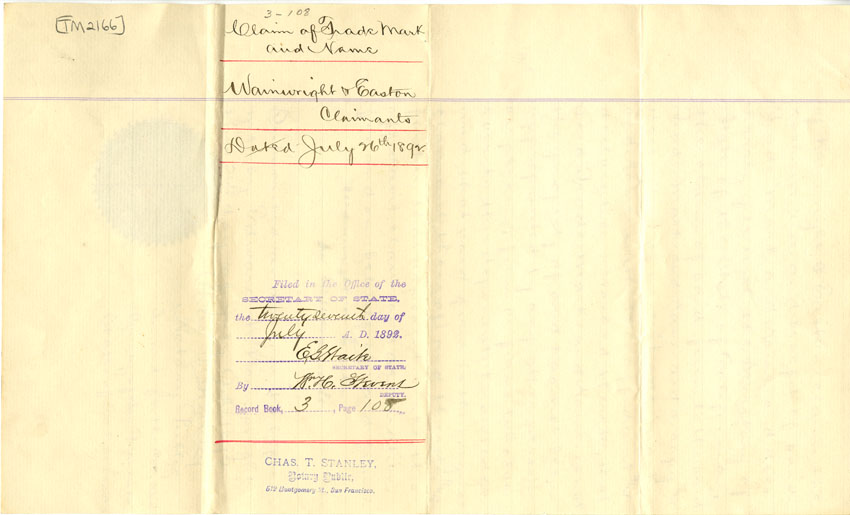 [TM2166]
3-108
Claim of Trade Mark
and Name
Wainwright & Easton
Claimants
Dated July 26th 1892.
Filed in the Office of the
SECRETARY OF STATE,
the twenty seventh day of
July A. D. 1892.
E. G. Waite
SECRETARY OF STATE.
By Wm. H.
DEPUTY.
Record Book, 3, Page 108
CHAS. T. STANLEY,
Notary Public,
Montgomery St., San Francisco.